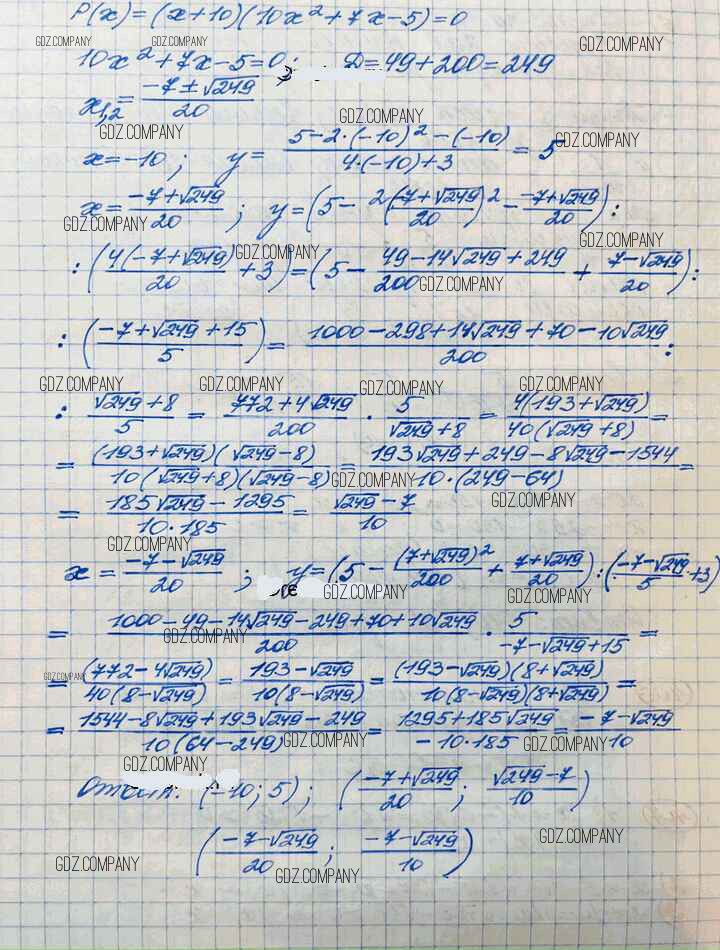 P(x) = (x+10)(10x² + 7x - 5) = 0
GDZ.COMPANY GDZ.COMPANY GDZ.COMPANY
10x² + 7x - 5 = 0; D = 49 + 200 = 249
x₁,₂ = (-7 ± √249)/20
GDZ.COMPANY GDZ.COMPANY GDZ.COMPANY
x = -10; y = (5 - 2·(-10)² - (-10))/(4·(-10) + 3) = 5
x = (-7 + √249)/20; y = (5 - 2(-7 + √249)²/20 - (-7 + √249)/20) :
GDZ.COMPANY GDZ.COMPANY GDZ.COMPANY
: (4(-7 + √249)/20 + 3) = (5 - (49 - 14√249 + 249)/200 + (7 - √249)/20) :
GDZ.COMPANY
: ((-7 + √249 + 15)/5) = (1000 - 298 + 14√249 + 70 - 10√249)/200 :
GDZ.COMPANY GDZ.COMPANY GDZ.COMPANY GDZ.COMPANY
: (√249 + 8)/5 = (772 + 4√249)/200 · 5/(√249 + 8) = 4(193 + √249)/40(√249 + 8) =
= (193 + √249)(√249 - 8)/10(√249 + 8)(√249 - 8) = (193√249 + 249 - 8√249 - 1544)/10·(249 - 64) =
GDZ.COMPANY GDZ.COMPANY
= (185√249 - 1295)/10·185 = (√249 - 7)/10
GDZ.COMPANY
x = (-7 - √249)/20; y = (5 - (7 + √249)²/200 + (7 + √249)/20) : ((-7 - √249)/5 + 3)
GDZ.COMPANY GDZ.COMPANY
= (1000 - 49 - 14√249 - 249 + 70 + 10√249)/200 · 5/(-7 - √249 + 15) =
GDZ.COMPANY
GDZ.COMPANY
= (772 - 4√249)/40(8 - √249) = (193 - √249)/10(8 - √249) = (193 - √249)(8 + √249)/10(8 - √249)(8 + √249) =
= (1544 - 8√249 + 193√249 - 249)/10(64 - 249) = (1295 + 185√249)/-10·185 = (-7 - √249)/10
GDZ.COMPANY GDZ.COMPANY
GDZ.COMPANY
(-10; 5); ((-7 + √249)/20; (√249 - 7)/10)
((-7 - √249)/20; (-7 - √249)/10)
GDZ.COMPANY GDZ.COMPANY GDZ.COMPANY